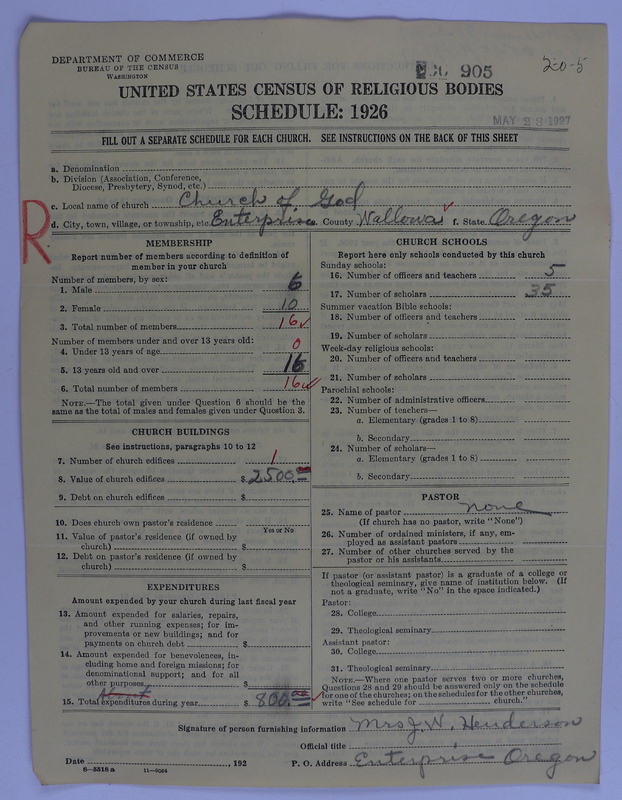 DEPARTMENT OF COMMERCE
BUREAU OF THE CENSUS
WASHINGTON
905
20-5
UNITED STATES CENSUS OF RELIGIOUS BODIES
SCHEDULE: 1926
MAY 28 1927
FILL OUT A SEPARATE SCHEDULE FOR EACH CHURCH. SEE INSTRUCTIONS ON THE BACK OF THIS SHEET
a. Denomination
b. Division (Association, Conference,
Diocese, Presbytery, Synod, etc.)
c. Local name of church Church of God
d. City, town, village, or township, etc. Enterprise e. County Wallowa f. State Oregon
R
MEMBERSHIP
Report number of members according to definition of
member in your church
Number of members, by sex:
1. Male 6
2. Female 10
3. Total number of members 16
Number of members under and over 13 years old:
4. Under 13 years of age 0
5. 13 years old and over 16
6. Total number of members 16
NOTE.—The total given under Question 6 should be
the same as the total of males and females given under Question 3.
CHURCH BUILDINGS
See instructions, paragraphs 10 to 12
7. Number of church edifices 1
8. Value of church edifices $ 2500.
9. Debt on church edifices $
10. Does church own pastor's residence
Yes or No
11. Value of pastor's residence (if owned by
church) $
12. Debt on pastor's residence (if owned by
church) $
EXPENDITURES
Amount expended by your church during last fiscal year
13. Amount expended for salaries, repairs,
and other running expenses; for im-
provements or new buildings; and for
payments on church debt $
14. Amount expended for benevolences, in-
cluding home and foreign missions; for
denominational support; and for all
other purposes
About
15. Total expenditures during year $ 800.00
CHURCH SCHOOLS
Report here only schools conducted by this church
Sunday schools:
16. Number of officers and teachers 5
17. Number of scholars 35
Summer vacation Bible schools:
18. Number of officers and teachers
19. Number of scholars
Week-day religious schools:
20. Number of officers and teachers
21. Number of scholars
Parochial schools:
22. Number of administrative officers
23. Number of teachers—
a. Elementary (grades 1 to 8)
b. Secondary
24. Number of scholars—
a. Elementary (grades 1 to 8)
b. Secondary
PASTOR
25. Name of pastor none
(If church has no pastor, write "None")
26. Number of ordained ministers, if any, em-
ployed as assistant pastors
27. Number of other churches served by the
pastor or his assistants
If pastor (or assistant pastor) is a graduate of a college or
theological seminary, give name of institution below. (If
not a graduate, write "No" in the space indicated.)
Pastor:
28. College
29. Theological seminary
Assistant pastor:
30. College
31. Theological seminary
NOTE.—Where one pastor serves two or more churches,
Questions 28 and 29 should be answered only on the schedule
for one of the churches; on the schedules for the other churches,
write "See schedule for church."
Signature of person furnishing information Mrs J. W. Henderson
Official title
Date , 192 P. O. Address Enterprise Oregon
6—5516a 11—9064